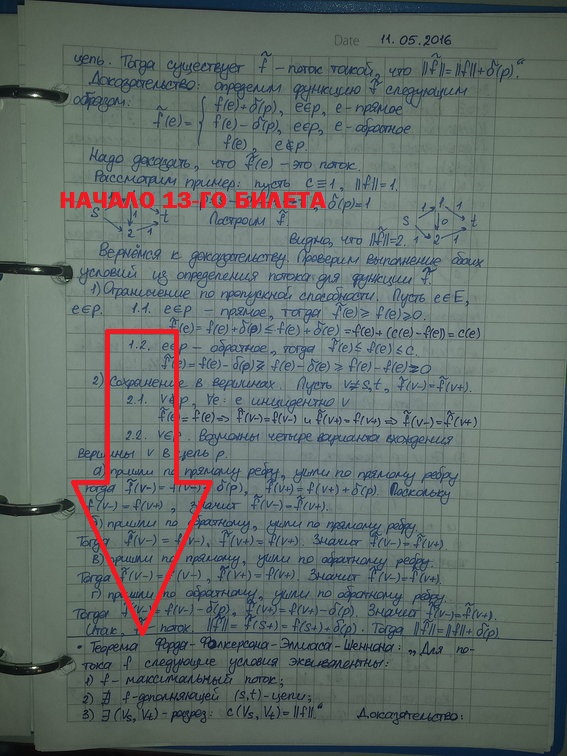 Date 11.05.2016
цепь. Тогда существует f̃ – поток такой, что ||f̃|| = ||f|| + δ(p)."
Доказательство: определим функцию f̃ следующим
образом:
f̃(e) = { f(e)+δ(p), e∈p, e – прямое
f(e) – δ(p), e∈p, e – обратное
f(e), e∉p.
Надо доказать, что f̃(e) – это поток.
Рассмотрим пример: пусть c≡1, ||f||=1.
НАЧАЛО 13-ГО БИЛЕТА
, δ(p)=1
S 1 t 2 Построим f̃. S 1 1 1 0 t 1 2 1
Видно, что ||f̃||=2.
Вернёмся к доказательству. Проверим выполнение обоих
условий из определения потока для функции f̃.
1) Ограничение по пропускной способности. Пусть e∈E,
e∈p. 1.1. e∈p – прямое, тогда f̃(e) ≥ f(e) ≥ 0.
f̃(e) = f(e)+δ(p) ≤ f(e) + δ(e) = f(e) + (c(e) – f(e)) = c(e)
1.2. e∈p – обратное, тогда f̃(e) ≤ f(e) ≤ c.
f̃(e) = f(e) – δ(p) ≥ f(e) – δ(e) ≥ f(e) – f(e) = 0
2) Сохранение в вершинах. Пусть v≠s,t, f̃(v–) = f̃(v+).
2.1. v∉p, ∀e: e инцидентно v
f̃(e) = f(e) ⇒ f̃(v–) = f(v–) и f̃(v+) = f(v+) ⇒ f̃(v–) = f̃(v+)
2.2. v∈p. Возможны четыре варианта вхождения
вершины v в цепь p.
а) пришли по прямому ребру, ушли по прямому ребру
Тогда f̃(v–) = f(v–) + δ(p), f̃(v+) = f(v+) + δ(p). Поскольку
f(v–) = f(v+), значит f̃(v–) = f̃(v+).
б) пришли по обратному, ушли по прямому ребру.
Тогда f̃(v–) = f(v–), f̃(v+) = f(v+). Значит f̃(v–) = f̃(v+).
в) пришли по прямому, ушли по обратному ребру.
Тогда f̃(v–) = f(v–), f̃(v+) = f(v+). Значит f̃(v–) = f̃(v+).
г) пришли по обратному, ушли по обратному ребру.
Тогда f̃(v–) = f(v–) – δ(p), f̃(v+) = f(v+) – δ(p). Значит f̃(v–) = f̃(v+).
Итак, поток ||f̃|| = f̃(s+) = f(s+) + δ(p). Тогда ||f̃|| = ||f|| + δ(p)
• Теорема Форда-Фалкерсона-Элиаса-Шеннона: „Для по-
тока f следующие условия эквивалентны:
1) f – максимальный поток;
2) ∄ f-дополняющей (s,t)-цепи;
3) ∃ (Vs, Vt) – разрез: c(Vs, Vt) = ||f||." Доказательство: